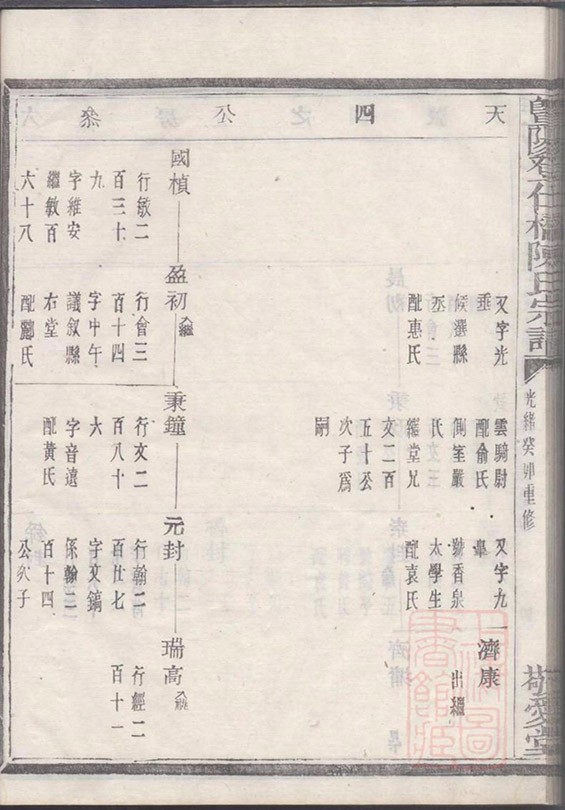 暨陽
橋陳氏宗譜
光緒癸卯重修
敬愛堂
天四公叅
又字光
垂
候選縣
丞
配惠氏
雲騎尉
配俞氏
側室嚴
氏
繼堂兄
文二百
五十公
次子為
嗣
又字九
皋
號香泉
太學生
配袁氏
濟康
出繼
國楨
行敏二
百三十
九
字維安
繼敏百
六十八
盈初
入繼
行會三
百十四
字中午
議叙縣
右堂
配酈氏
秉鐘
行文二
百八十
六
字音遠
配黃氏
元封
行翰二
百廿七
字文鎬
係翰二
百十四
公次子
瑞高
入繼
行經二
百十一